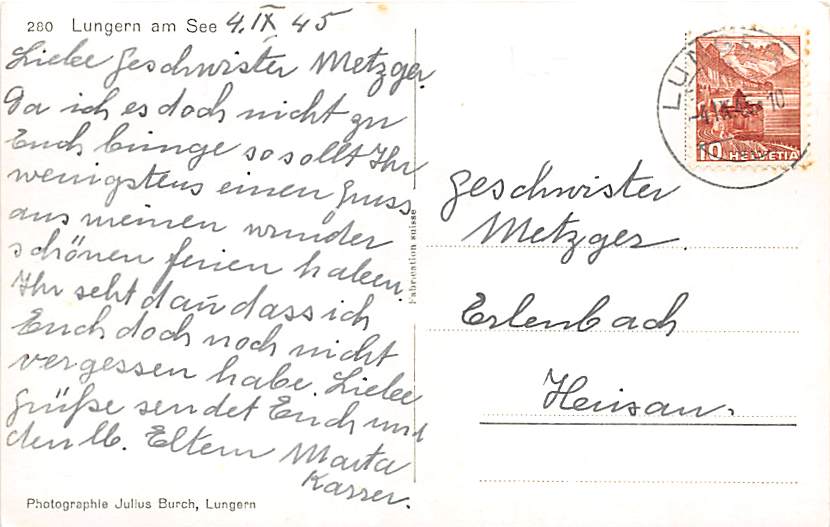 280 Lungern am See 4.IX 45
Liebe Geschwister Metzger
Da ich es doch nicht zu
Euch bringe so sollt Ihr
wenigstens einen Gruss
aus meinen wunder
schönen ferien haben.
Ihr seht dan dass ich
Euch doch noch nicht
vergessen habe. Liebe
Grüße sendet Euch und
den lb. Eltern Marta
Karrer.
Photographie Julius Burch, Lungern
Fabrication suisse
LUNGERN
-4.IX. 10
10 HELVETIA
Geschwister
Metzger.
Erlenbach